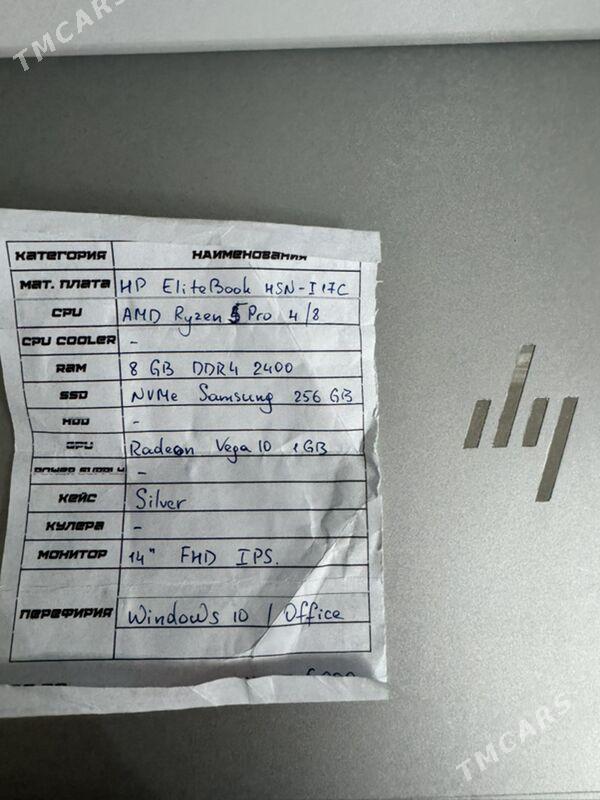 TMCARS
КАТЕГОРИЯ НАИМЕНОВАНИЯ
МАТ. ПЛАТА HP EliteBook HSN-I17C
CPU AMD Ryzen 5 Pro 4/8
CPU COOLER -
RAM 8 GB DDR4 2400
SSD NVMe Samsung 256 GB
HDD -
GPU Radeon Vega 10 1GB
POWER SUPPLY -
КЕЙС Silver
КУЛЕРА -
МОНИТОР 14" FHD IPS.
ПЕРЕФИРИЯ Windows 10 / Office
hp
TMCARS